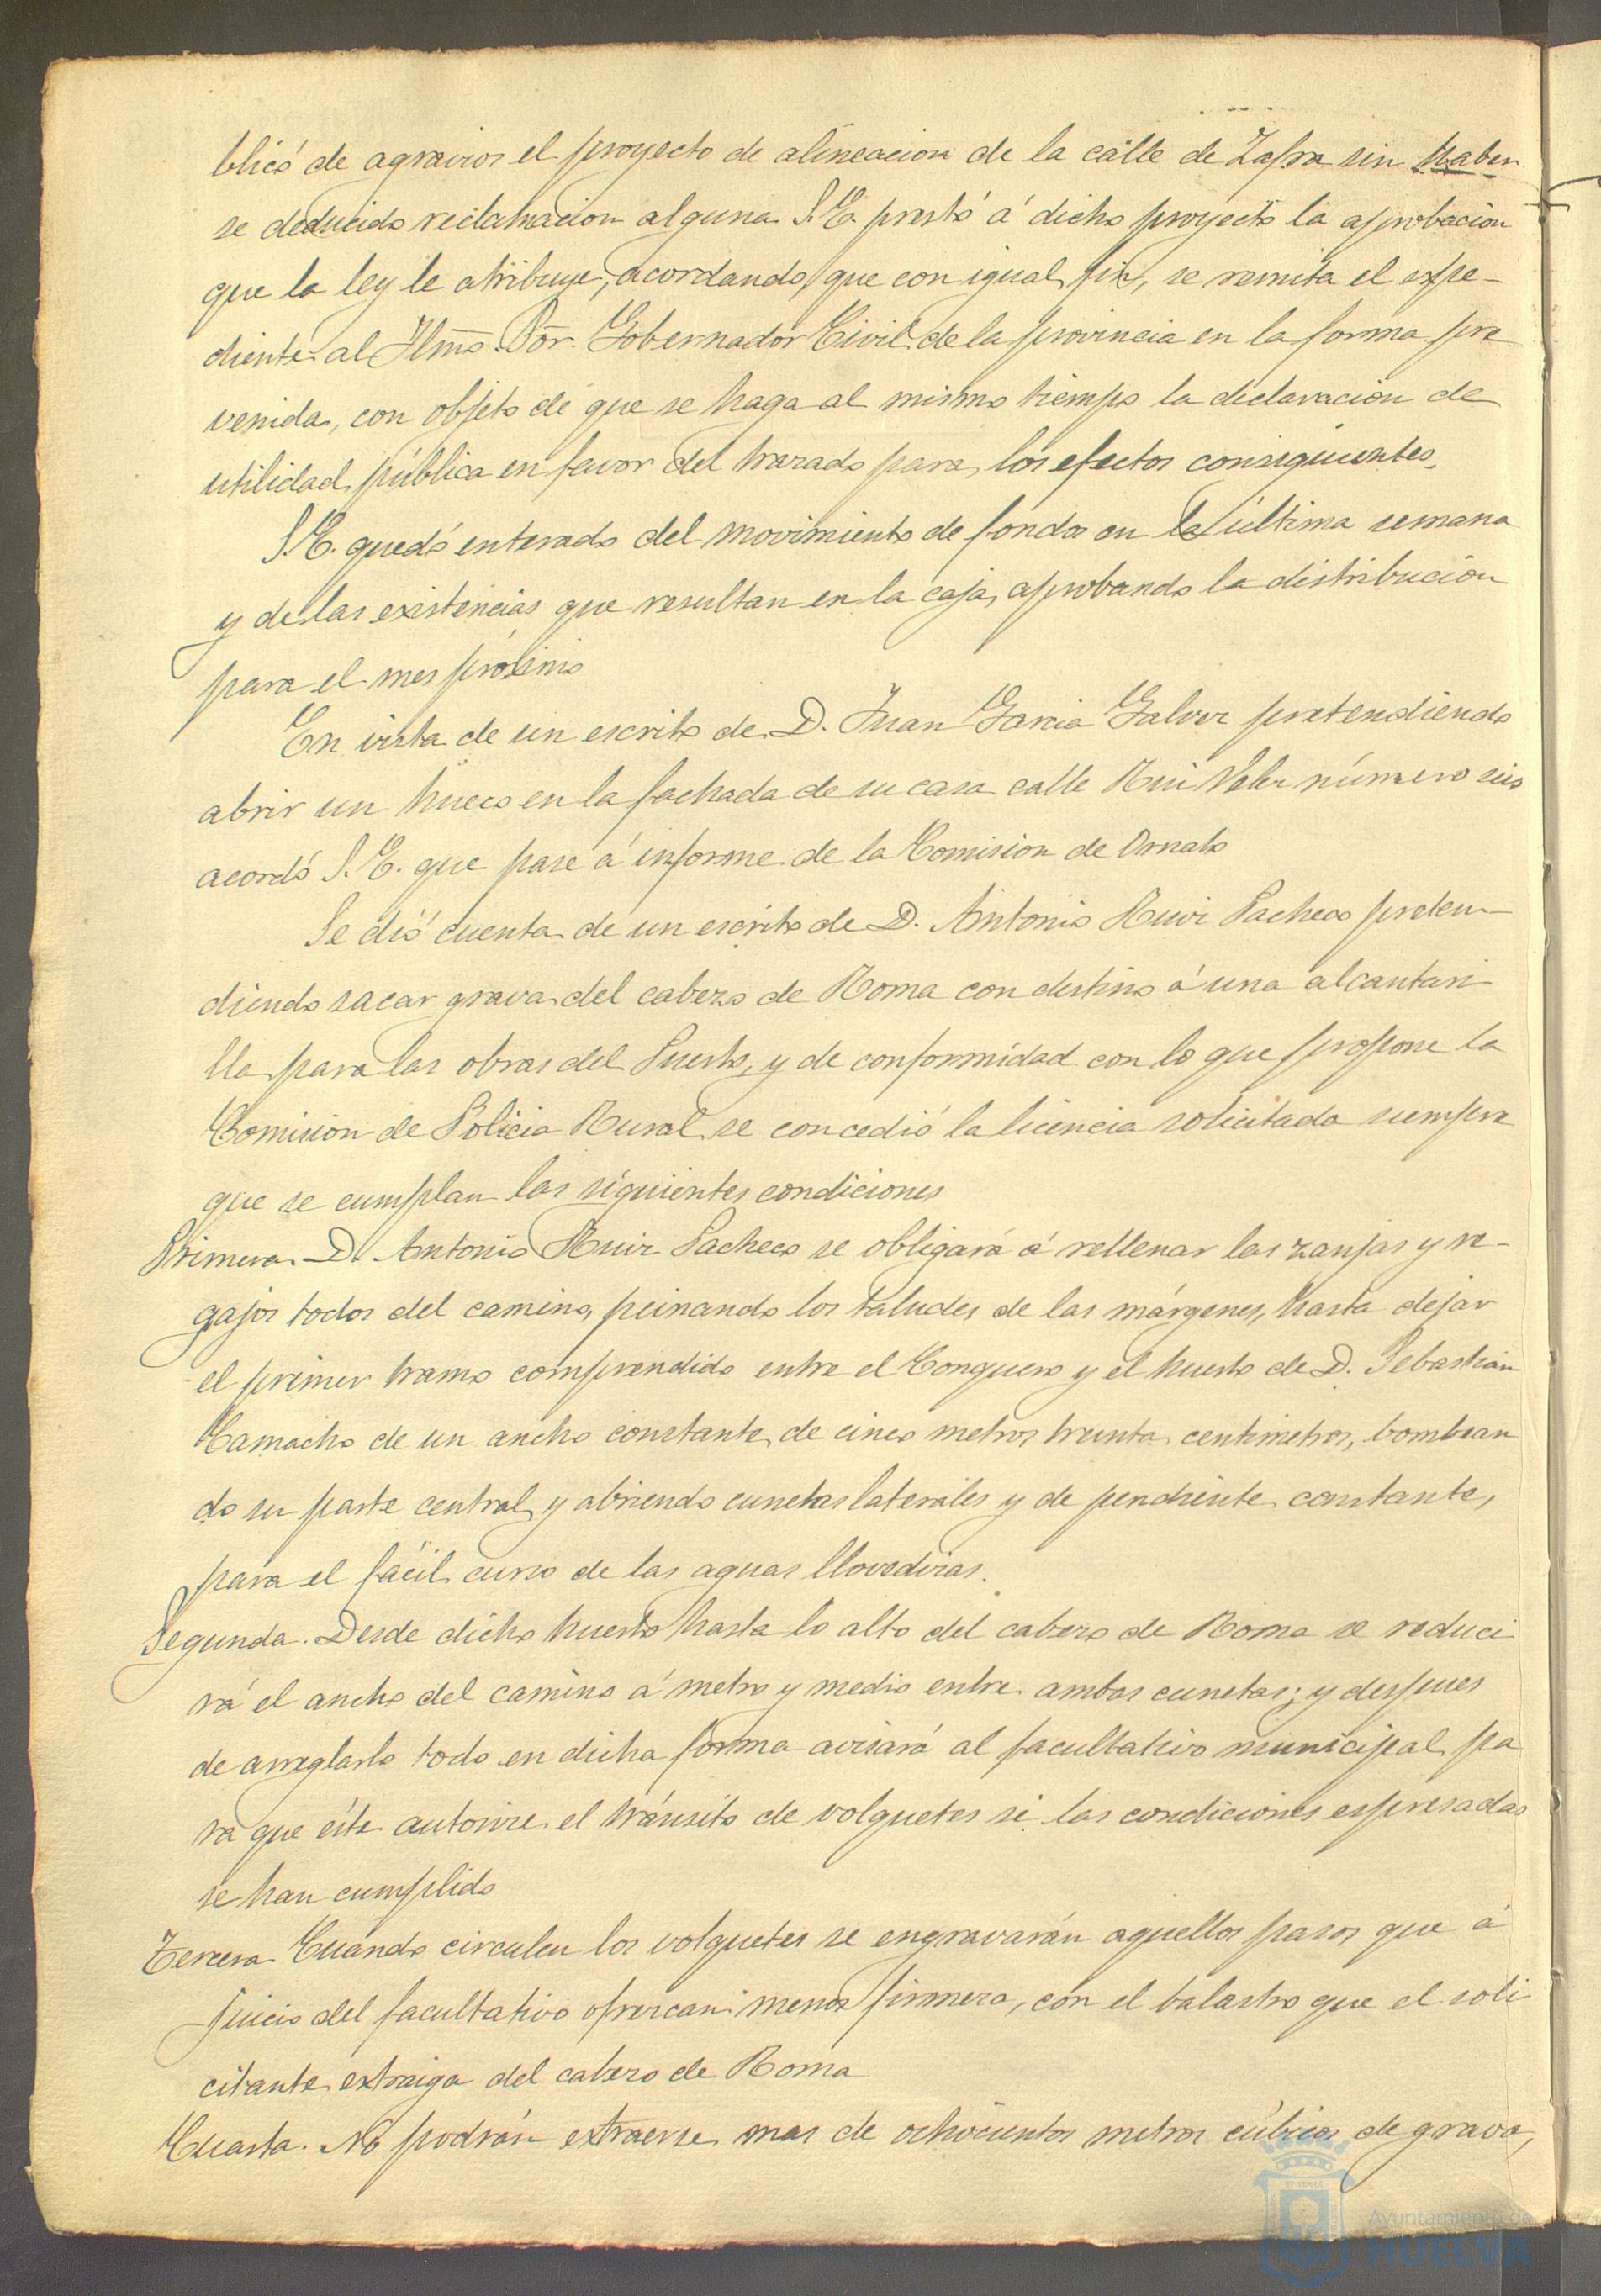 blicó de agravios el proyecto de alineacion de la calle de Zafra sin haber
se deducido reclamacion alguna S.E. prestó á dicho proyecto la aprobacion
que la ley le atribuye, acordando, que con igual fin, se remita el espe-
diente al Ilmo. Sor. Gobernador Civil de la provincia en la forma pre
venida, con objeto de que se haga al mismo tiempo la declaracion de
utilidad pública en favor del trazado para los efectos consiguientes.
S.E. quedó enterado del movimiento de fondos en la última semana
y de las existencias que resultan en la caja, aprobando la distribucion
para el mes próximo
En vista de un escrito de D. Juan Garcia Galvez pretendiendo
abrir un hueco en la fachada de su casa calle Rui Velez número seis
acordó S.E. que pase á informe de la Comision de Ornato
Se dió cuenta de un escrito de D. Antonio Ruiz Pacheco preten-
diendo sacar grava del cabezo de Roma con destino á una alcantari
lla para las obras del Puerto, y de conformidad con lo que propone la
Comision de Policia Rural se concedió la licencia solicitada siempre
que se cumplan las siguientes condiciones
Primera. D. Antonio Ruiz Pacheco se obligará á rellenar las zanjas y re-
gajos todos del camino, peinando los taludes de las márgenes, hasta dejar
el primer tramo comprendido entre el Conquero y el huerto de D. Sebastian
Camacho de un ancho constante de cinco metros treinta centimetros, bombean
do su parte central y abriendo cunetas laterales y de pendiente constante,
para el fácil curso de las aguas llovedizas.
Segunda. Desde dicho huerto hasta lo alto del cabezo de Roma se reduci
rá el ancho del camino á metro y medio entre ambas cunetas; y despues
de arreglarlo todo en dicha forma avisará al facultativo municipal pa
ra que éste autorize el tránsito de volquetes si las condiciones espresadas
se han cumplido
Tercera. Cuando circulen los volquetes se engravarán aquellos pasos que á
juicio del facultativo ofrezcan menos firmeza, con el balastro que el soli
citante extraiga del cabezo de Roma
Cuarta. No podrán extraerse mas de ochocientos metros cúbicos de grava,
Ayuntamiento de
HUELVA